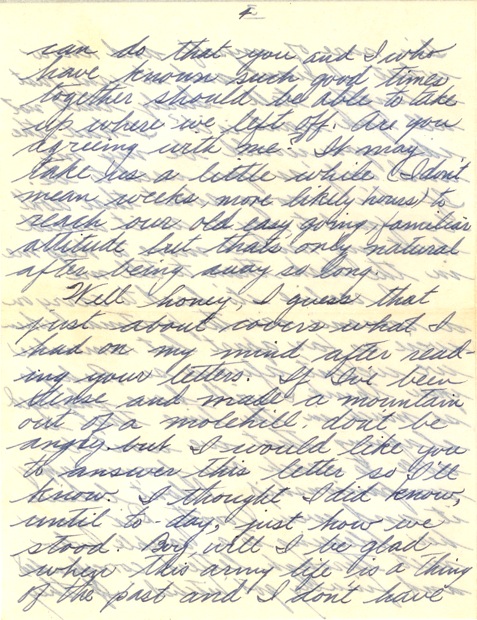 4
can do that you and I who
have known such good times
together should be able to take
up where we left off. Are you
agreeing with me? It may
take us a little while (I don't
mean weeks, more likely hours) to
reach our old easy going, familiar
attitude but thats only natural
after being away so long.
Well honey, I guess that
just about covers what I
had on my mind after read-
ing your letters. If I've been
dense and made a mountain
out of a molehill, don't be
angry but I would like you
to answer this letter so I'll
know. I thought I did know,
until to-day, just how we
stood. Boy, will I be glad
when this army life is a thing
of the past and I don't have